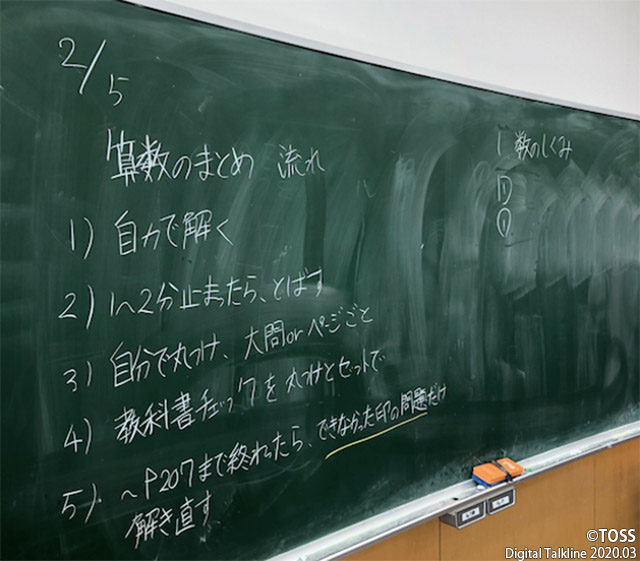 2/5
算数のまとめ 流れ
1) 自力で解く
2) 1〜2分止まったら、とばす
3) 自分で丸つけ、大問orページごと
4) 教科書チェックを丸つけとセットで
5) 〜P207まで終わったら、できなかった印の問題だけ
解き直す
1 数のしくみ
①
©TOSS
Digital Talkline 2020.03